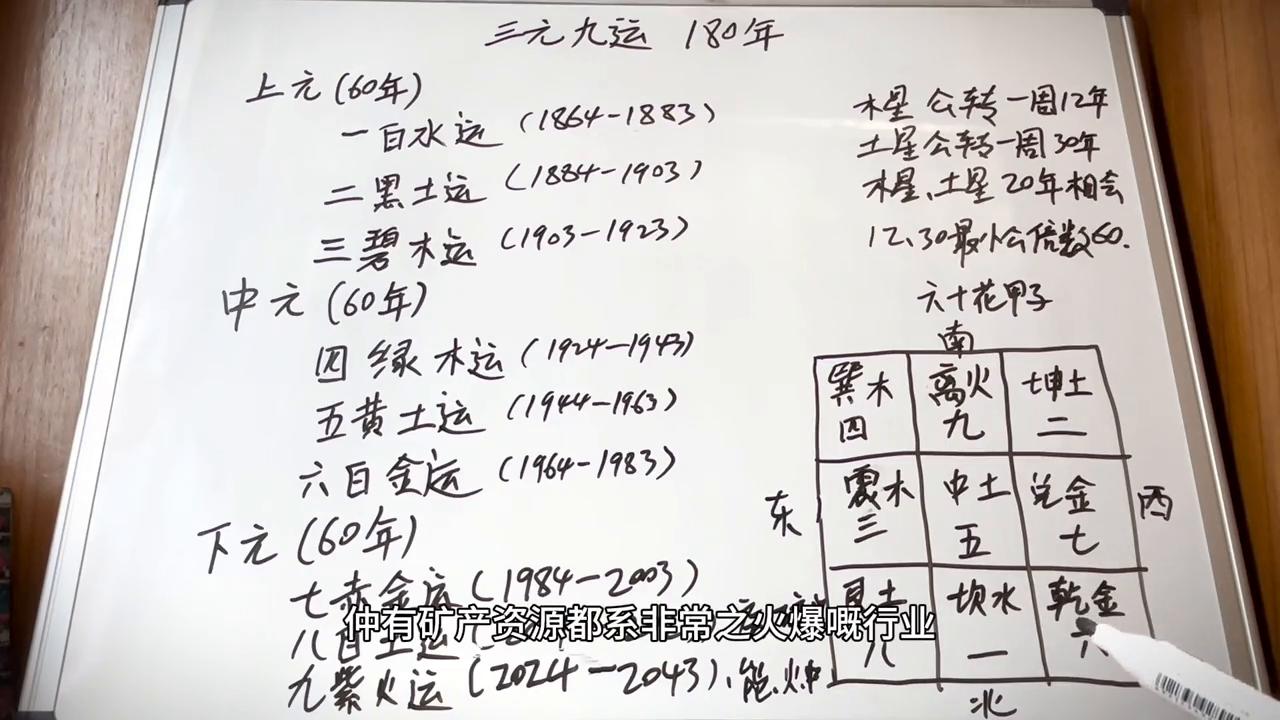 三元九运 180年
上元(60年)
一白水运 (1864-1883)
二黑土运 (1884-1903)
三碧木运 (1903-1923)
中元(60年)
四绿木运 (1924-1943)
五黄土运 (1944-1963)
六白金运 (1964-1983)
下元(60年)
七赤金运 (1984-2003)
八白土运
九紫火运 (2024-2043)、能、火中
木星公转一周12年
土星公转一周30年
木星、土星20年相会
12、30最小公倍数60.
六十花甲子
南
巽木 离火 坤土
四 九 二
东 震木 中土 兑金 西
三 五 七
艮土 坎水 乾金
八 一 六
北
仲有矿产资源都系非常之火爆嘅行业